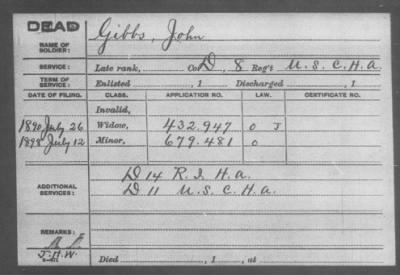 DEAD
NAME OF SOLDIER: Gibbs, John
SERVICE: Late rank, Co. D, 8 Reg't U. S. C. H. A.
TERM OF SERVICE: Enlisted , 1 Discharged , 1
DATE OF FILING. CLASS. APPLICATION NO. LAW. CERTIFICATE NO.
Invalid,
1890 July 26 Widow, 432.947 O J
1898 July 12 Minor, 679.481 O
ADDITIONAL SERVICES: D 14 R. I. H. A.
D 11 U. S. C. H. A.
REMARKS:
J. H. W. Died , 1 , at